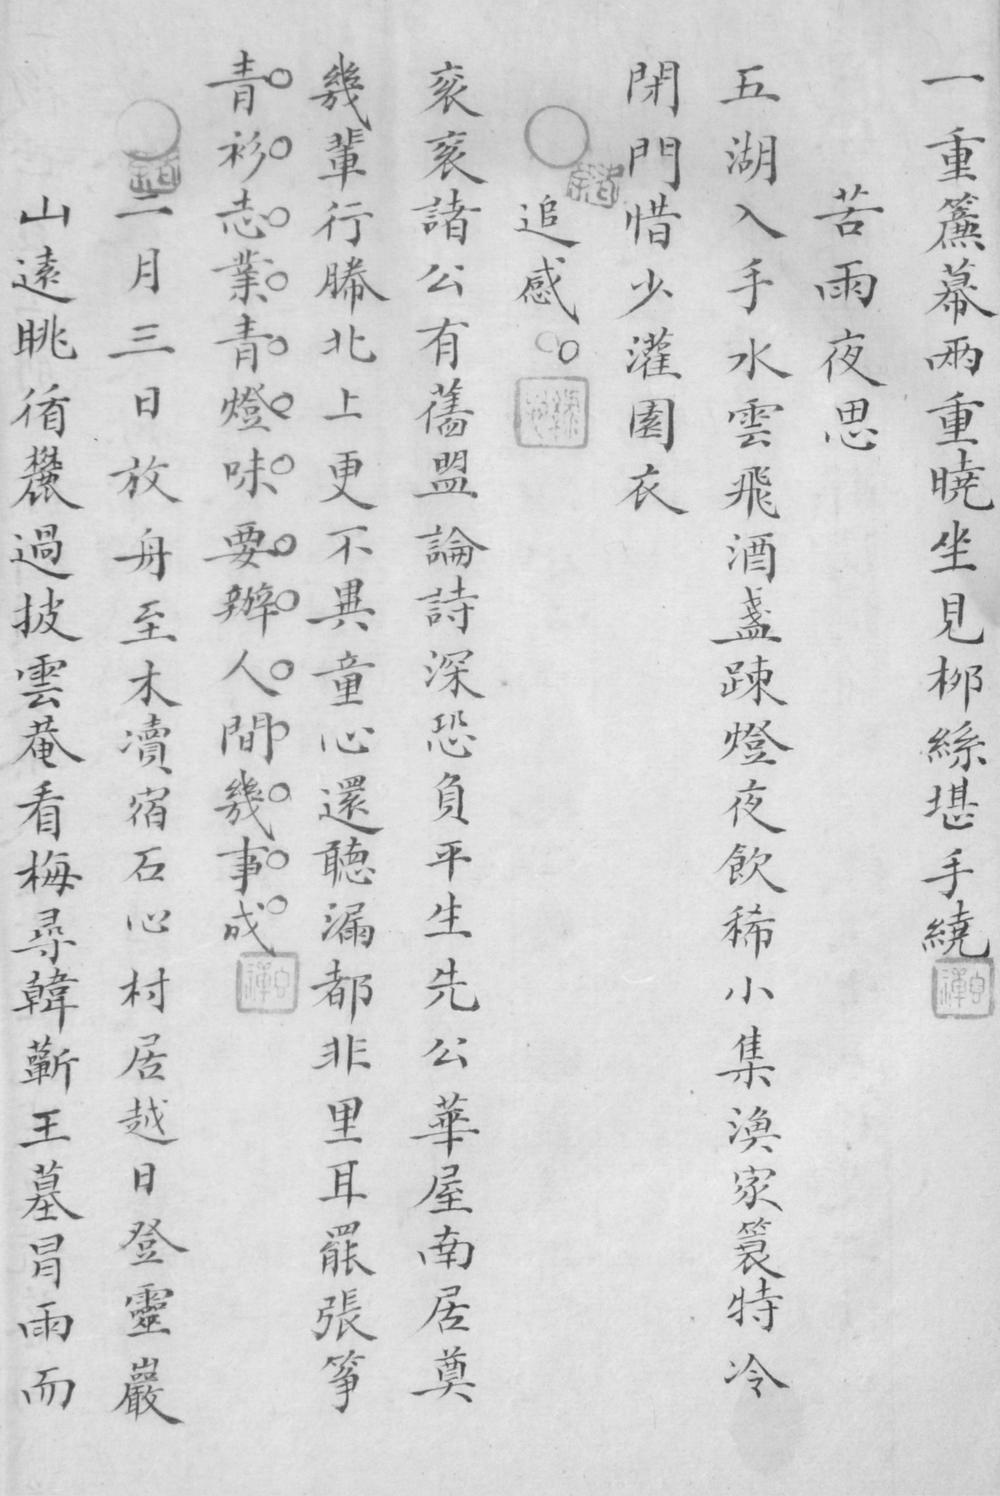 一重簾幕兩重曉坐見桞絲堪手繞
苦雨夜思
五湖入手水雲飛酒盞踈燈夜飲稀小集漁家簑特冷
閉門惜少灌園衣
追感
衮衮諸公有舊盟論詩深恐負平生先公華屋南居奠
幾輩行幐北上更不異童心還聽漏都非里耳罷張筝
青衫志業青燈味要辦人間幾事成
二月三日放舟至木瀆宿石心村居越日登靈巖
山遠眺循麓過披雲菴看梅尋韓蘄王墓冒雨而